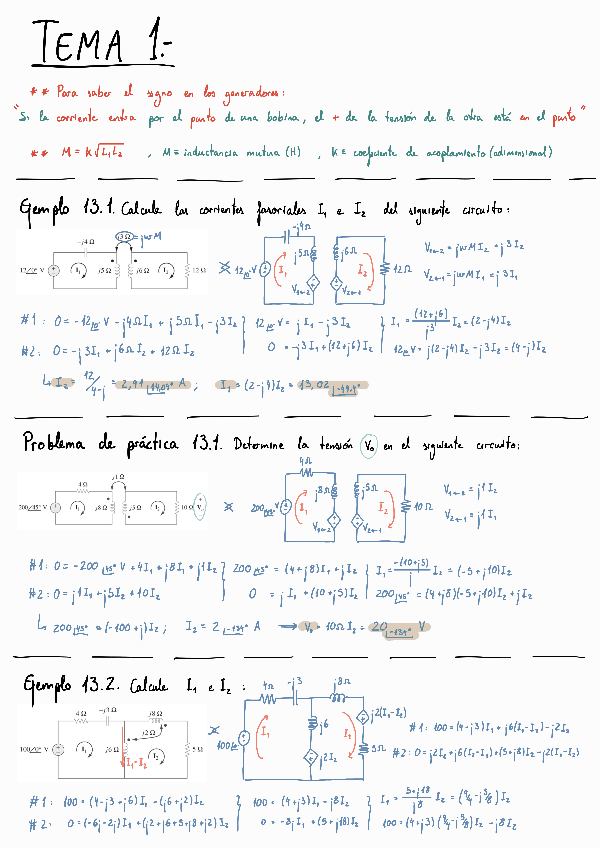 TEMA 1.-
** Para saber el signo en los generadores:
"Si la corriente entra por el punto de una bobina, el + de la tensión de la otra está en el punto"
** M = K√L₁L₂ , M ≡ inductancia mutua (H) , K ≡ coeficiente de acoplamiento (adimensional)
Ejemplo 13.1. Calcule las corrientes fasoriales I₁ e I₂ del siguiente circuito:
-j4 Ω j3 Ω = jωM
12/0° V I₁ j5 Ω j6 Ω I₂ 12 Ω
-j4Ω
12|0° V I₁ j5Ω V₁←₂ j6Ω V₂←₁ I₂ 12Ω
V₁←₂ = jωM I₂ = j3 I₂
V₂←₁ = jωM I₁ = j3I₁
#1: 0 = -12|0° V - j4Ω I₁ + j5Ω I₁ - j3I₂ 12|0° V = j I₁ - j3I₂ I₁ = (12+j6)/j3 I₂ = (2-j4)I₂
#2: 0 = -j3I₁ + j6Ω I₂ + 12Ω I₂ 0 = -j3I₁ + (12+j6)I₂ 12|0° V = j(2-j4)I₂ - j3I₂ = (4-j)I₂
↳ I₂ = 12/4-j = 2,91|14,04° A ; I₁ = (2-j4)I₂ = 13,02|-49,4°
Problema de práctica 13.1. Determine la tensión V₀ en el siguiente circuito:
4 Ω j1 Ω
200/45° V I₁ j8 Ω j5 Ω I₂ 10 Ω V₀
4Ω
200|45° V I₁ j8Ω V₁←₂ j5Ω V₂←₁ I₂ 10Ω
V₁←₂ = j1 I₂
V₂←₁ = j1 I₁
#1: 0 = -200|45° V + 4I₁ + j8I₁ + j1I₂ 200|45° = (4+j8)I₁ + jI₂ I₁ = -(10+j5)/j I₂ = (-5+j10)I₂
#2: 0 = j1I₁ + j5I₂ + 10I₂ 0 = jI₁ + (10+j5)I₂ 200|45° = (4+j8)(-5+j10)I₂ + jI₂
↳ 200|45° = (-100+j)I₂ ; I₂ = 2|-134° A → V₀ = 10Ω I₂ = 20|-134° V
Ejemplo 13.2. Calcule I₁ e I₂ :
4 Ω -j3 Ω j8 Ω
j2 Ω
100/0° V I₁ j6 Ω I₂ 5 Ω
I₁-I₂
4Ω -j3 j8Ω
100|0° I₁ j6 j2I₂ I₂ j2(I₁-I₂) 5Ω
#1: 100 = (4-j3)I₁ + j6(I₁-I₂) - j2I₂
#2: 0 = j2I₂ + j6(I₂-I₁) + (5+j8)I₂ - j2(I₁-I₂)
#1: 100 = (4-j3+j6)I₁ - (j6+j2)I₂ 100 = (4+j3)I₁ - j8I₂ I₁ = 5+j18/j8 I₂ = (9/4 - j5/8)I₂
#2: 0 = (-6j-2j)I₁ + (j2+j6+5+j8+j2)I₂ 0 = -8jI₁ + (5+j18)I₂ 100 = (4+j3)(9/4 - j5/8)I₂ - j8I₂